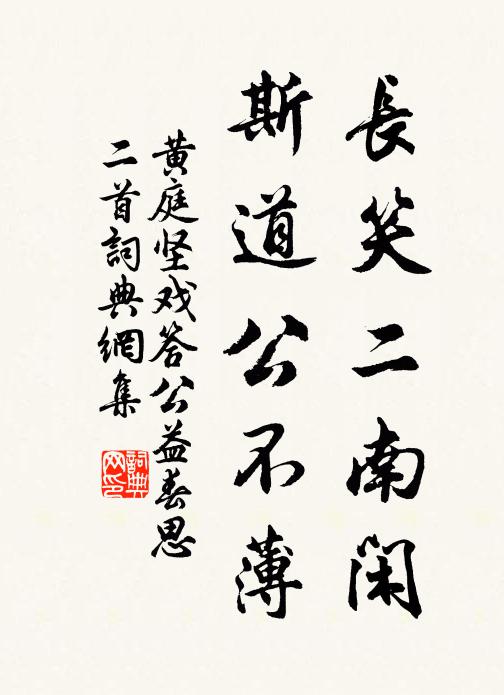 長笑二南閑
斯道公不薄
黄庭坚戏答公益春思
二首詞典網集
詞典
网印